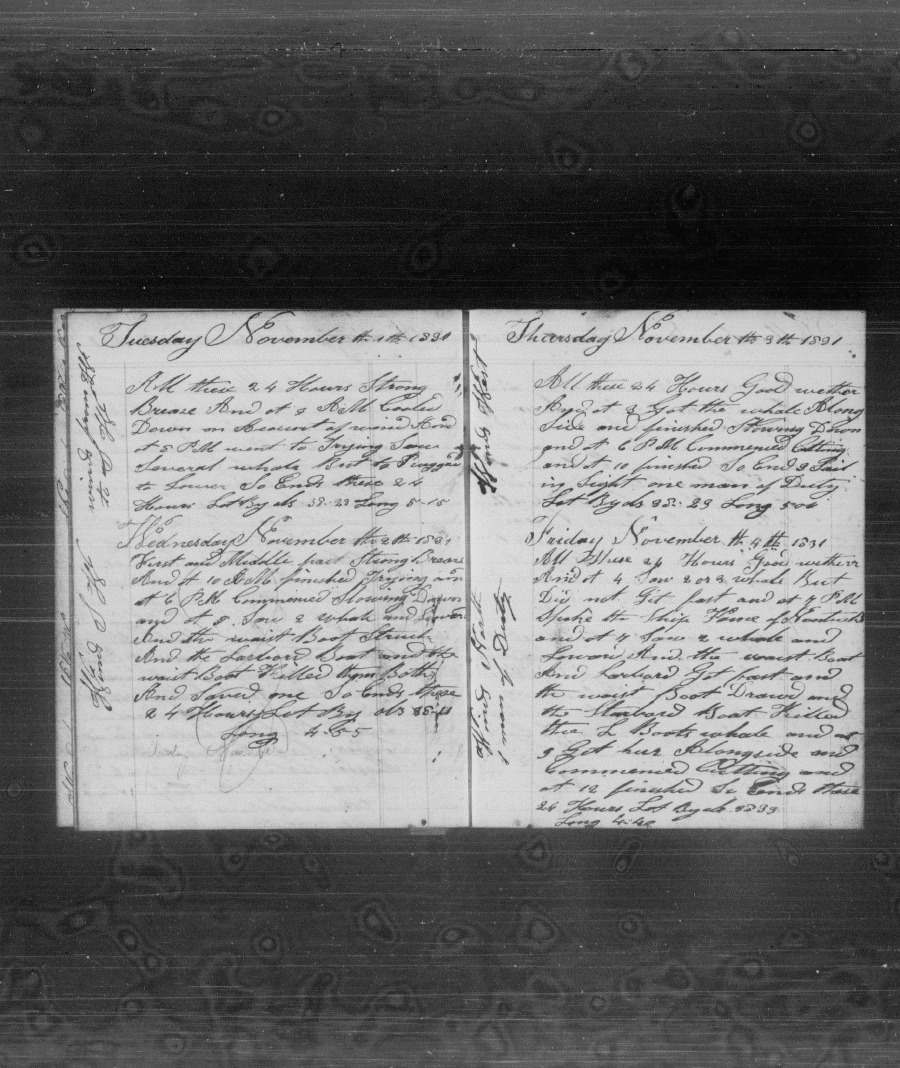 Tuesday November th 1th 1831
All these 24 Hours Strong
Brease And at 9 AM Cooled
Down on Account of wind And
at 5 PM went to Trying Saw
Several whale But to Rugged
to Lower So Ends these 24
Hours Lat By obs 35-23 Long 5-15
Wednesday November th 2th 1831
First and Middle part Strong Brease
And at 10 AM finished Trying and
at 6 PM Commenced Stowing Down
and at 8 Saw 2 whale and Lowered
And the waist Boat Struck
And the Larbord Boat and the
waist Boat Killed them Both
And Saved one So Ends these
24 Hours Lat By obs 35-11
Long 4-55
Wind West
Thursday November th 3th 1831
All these 24 Hours Good wether
And at 3 Got the whale Along
Side and finished Stowing Down
and at 6 PM Commenced Cutting
and at 10 finished So Ends 3 Sail
in Sight one man of Duty
Lat By obs 35-23 Long 5-04
Wind North
1 man of Duty
Friday November th 4th 1831
All These 24 Hours Good wether
And at 4 Saw 2 or 3 whale But
Did not Git fast and at 7 PM
Spoke the Ship Fame of Nantucket
and at 7 Saw 2 whale and
Lowerd And the waist Boat
And Larbord Got fast and
the waist Boat Drawd and
the Starbord Boat Killed
the L Boats whale and at
9 Got hur Alongside and
Commenced Cutting and
at 12 finished So Ends these
24 Hours Lat By obs 35-33
Long 4-40